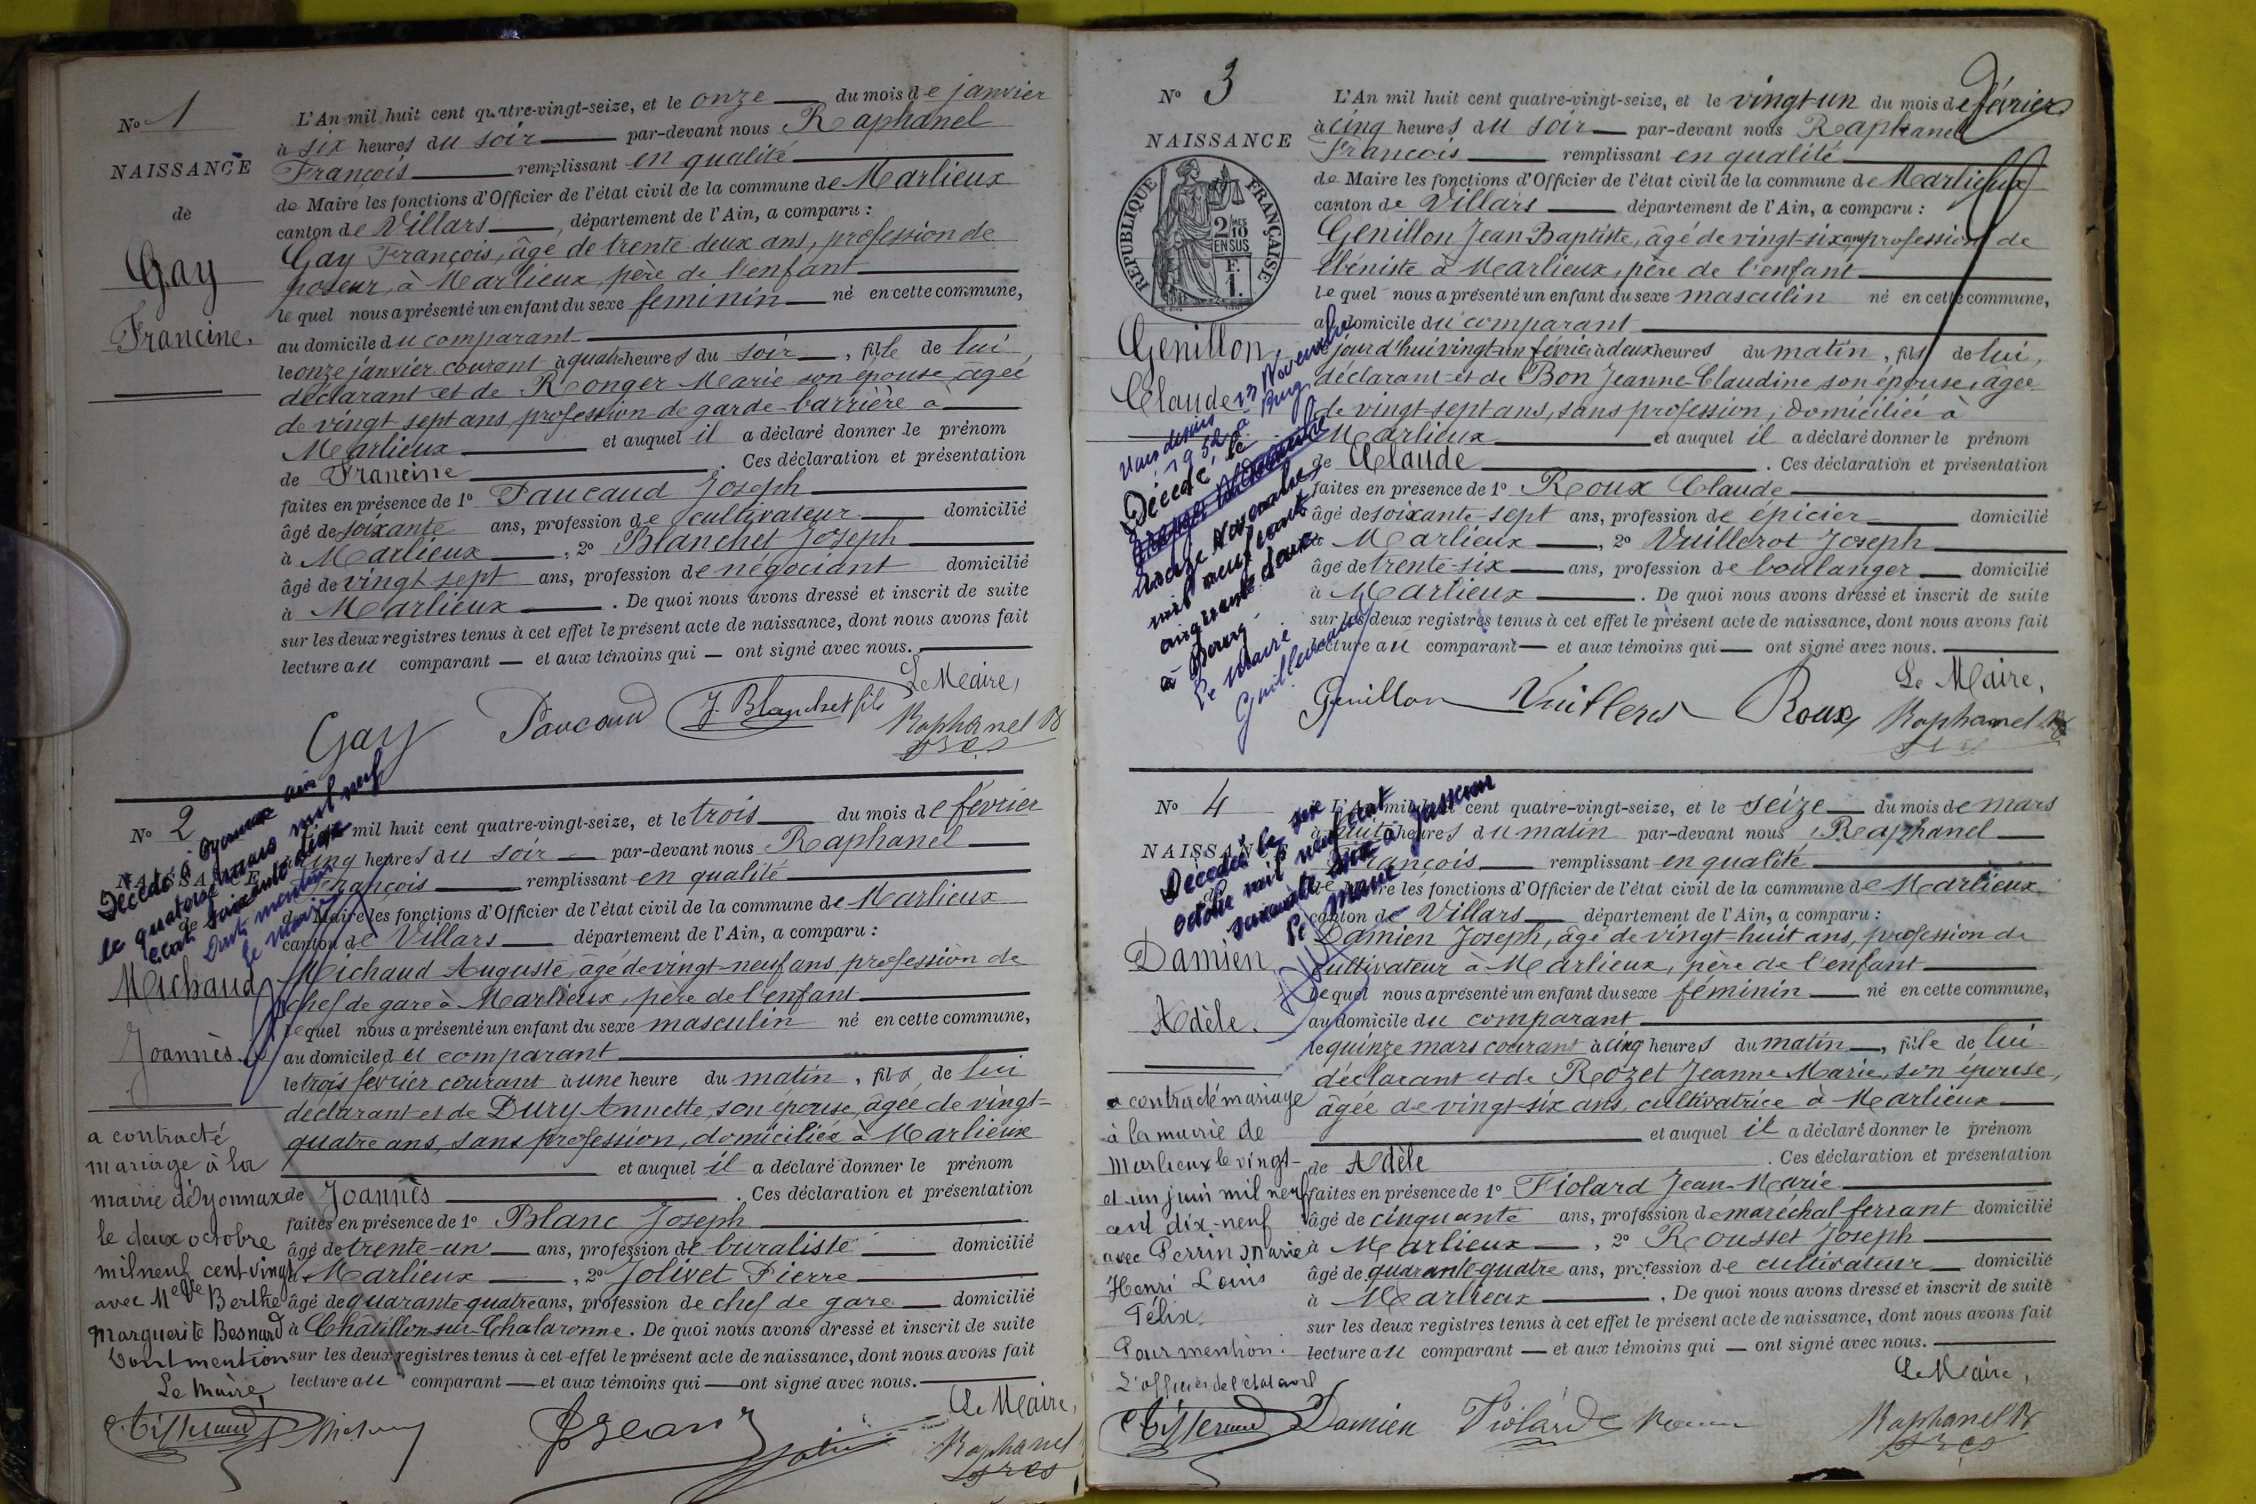 No 1
NAISSANCE
de
Gay
Francine.
L'An mil huit cent quatre-vingt-seize, et le onze du mois de janvier
à six heures du soir par-devant nous Raphanel
François remplissant en qualité
de Maire les fonctions d'Officier de l'état civil de la commune de Marlieux
canton de Villars, département de l'Ain, a comparu :
Gay François, âgé de trente deux ans, profession de
poseur, à Marlieux, père de l'enfant
lequel nous a présenté un enfant du sexe feminin né en cette commune,
au domicile du comparant
le onze janvier courant à quatre heures du soir, fille de lui,
déclarant et de Ronger Marie son épouse âgée
de vingt sept ans, profession de garde-barrière à
Marlieux et auquel il a déclaré donner le prénom
de Francine. Ces déclaration et présentation
faites en présence de 1º Paucaud Joseph
âgé de soixante ans, profession de cultivateur domicilié
à Marlieux, 2º Blanchet Joseph
âgé de vingt sept ans, profession de négociant domicilié
à Marlieux. De quoi nous avons dressé et inscrit de suite
sur les deux registres tenus à cet effet le présent acte de naissance, dont nous avons fait
lecture au comparant — et aux témoins qui — ont signé avec nous.
Le Maire,
Gay Paucaud J. Blanchet fils Raphanel
No 2
NAISSANCE
de
Michaud
Joannès.
Décédé à Oyonnax ain
le quatorze mars mil neuf
cent soixante dix
Dont mention
le Maire
a contracté
mariage à la
mairie d'Oyonnax
le deux octobre
mil neuf cent vingt
avec Melle Berthe
Marguerite Besnard
Dont mention
Le Maire,
Tisserand
mil huit cent quatre-vingt-seize, et le trois du mois de février
cinq heures du soir — par-devant nous Raphanel
François remplissant en qualité
de Maire les fonctions d'Officier de l'état civil de la commune de Marlieux
canton de Villars département de l'Ain, a comparu :
Michaud Auguste, âgé de vingt-neuf ans profession de
chef de gare à Marlieux, père de l'enfant
lequel nous a présenté un enfant du sexe masculin né en cette commune,
au domicile du comparant
le trois février courant à une heure du matin, fils de lui
déclarant et de Dury Annette, son épouse, âgée de vingt-
quatre ans, sans profession, domiciliée à Marlieux
et auquel il a déclaré donner le prénom
de Joannès. Ces déclaration et présentation
faites en présence de 1º Blanc Joseph
âgé de trente-un ans, profession de buraliste domicilié
à Marlieux, 2º Jolivet Pierre
âgé de quarante-quatre ans, profession de chef de gare domicilié
à Châtillon-sur-Chalaronne. De quoi nous avons dressé et inscrit de suite
sur les deux registres tenus à cet effet le présent acte de naissance, dont nous avons fait
lecture au comparant — et aux témoins qui — ont signé avec nous.
Le Maire,
Raphanel
No 3
NAISSANCE
RÉPUBLIQUE FRANÇAISE
2/10 MES
EN SUS
F.
1.
Genillon,
Claude
Décédé le
treize Novembre
mil neuf cent
cinquante deux
à Bourg
Le Maire
L'An mil huit cent quatre-vingt-seize, et le vingt-un du mois de février
à cinq heures du soir — par-devant nous Raphanel
François remplissant en qualité
de Maire les fonctions d'Officier de l'état civil de la commune de Marlieux
canton de Villars département de l'Ain, a comparu :
Genillon Jean-Baptiste, âgé de vingt-six ans profession de
ébéniste à Marlieux, père de l'enfant
lequel nous a présenté un enfant du sexe masculin né en cette commune,
au domicile du comparant
jourd'hui vingt-un février à deux heures du matin, fils de lui,
déclarant et de Bon Jeanne-Claudine son épouse, âgée
de vingt-sept ans, sans profession, domiciliée à
Marlieux et auquel il a déclaré donner le prénom
de Claude. Ces déclaration et présentation
faites en présence de 1º Roux Claude
âgé de soixante-sept ans, profession de épicier domicilié
à Marlieux, 2º Vuillerot Joseph
âgé de trente-six ans, profession de boulanger domicilié
à Marlieux. De quoi nous avons dressé et inscrit de suite
sur les deux registres tenus à cet effet le présent acte de naissance, dont nous avons fait
lecture au comparant — et aux témoins qui — ont signé avec nous.
Le Maire,
Genillon Vuillerot Roux Raphanel
No 4
NAISSANCE
Damien
Adèle.
Décédée le six
octobre mil neuf cent
soixante à Jasseron
Le Maire
a contracté mariage
à la mairie de
Marlieux le vingt-
et un juin mil neuf
cent dix-neuf
avec Perrin Marie
Henri Louis
Félix.
Pour mention :
L'officier de l'état civil
Tisserand
L'An mil huit cent quatre-vingt-seize, et le seize du mois de mars
à huit heures du matin par-devant nous Raphanel
François remplissant en qualité
de Maire les fonctions d'Officier de l'état civil de la commune de Marlieux
canton de Villars département de l'Ain, a comparu :
Damien Joseph, âgé de vingt-huit ans, profession de
cultivateur à Marlieux, père de l'enfant
lequel nous a présenté un enfant du sexe féminin né en cette commune,
au domicile du comparant
le quinze mars courant à cinq heures du matin, fille de lui
déclarant et de Rozet Jeanne Marie, son épouse,
âgée de vingt-six ans, cultivatrice à Marlieux
et auquel il a déclaré donner le prénom
de Adèle. Ces déclaration et présentation
faites en présence de 1º Fiolard Jean-Marie
âgé de cinquante ans, profession de maréchal ferrant domicilié
à Marlieux, 2º Rousset Joseph
âgé de quarante-quatre ans, profession de cultivateur domicilié
à Marlieux. De quoi nous avons dressé et inscrit de suite
sur les deux registres tenus à cet effet le présent acte de naissance, dont nous avons fait
lecture au comparant — et aux témoins qui — ont signé avec nous.
Le Maire,
Damien Fiolard Raphanel